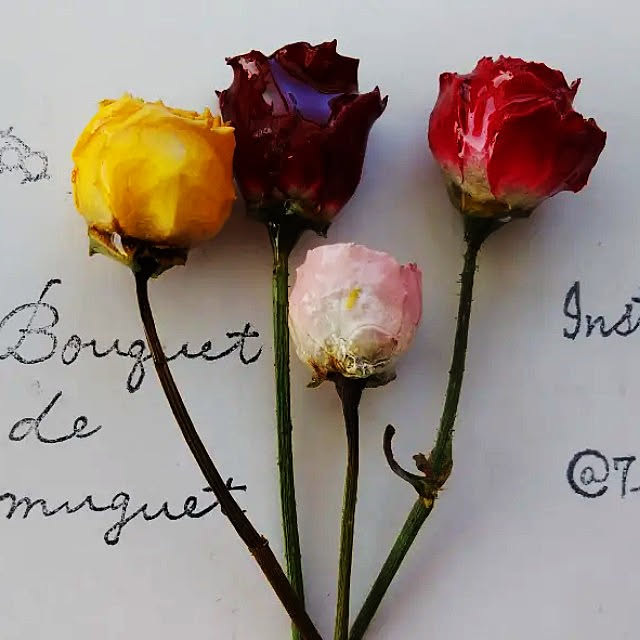 Bouquet
de
muguet
Ins
@7